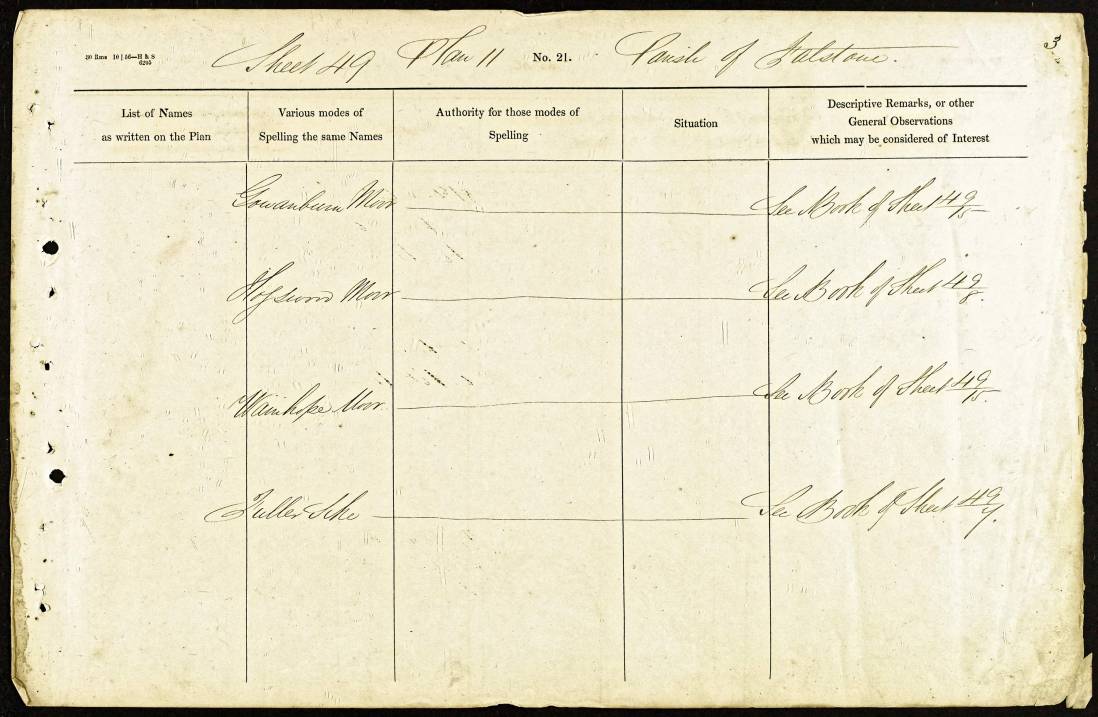 30 Rms 10 | 56—H & S
6205
Sheet 49 Plan 11 No. 21. Parish of Falstone.
3
List of Names
as written on the Plan
Various modes of
Spelling the same Names
Authority for those modes of
Spelling
Situation
Descriptive Remarks, or other
General Observations
which may be considered of Interest
Gowanburn Moor See Book of Sheet 49/15
Hogswood Moor See Book of Sheet 49/8.
Wainhope Moor See Book of Sheet 49/15.
Fuller Sike See Book of Sheet 49/7.